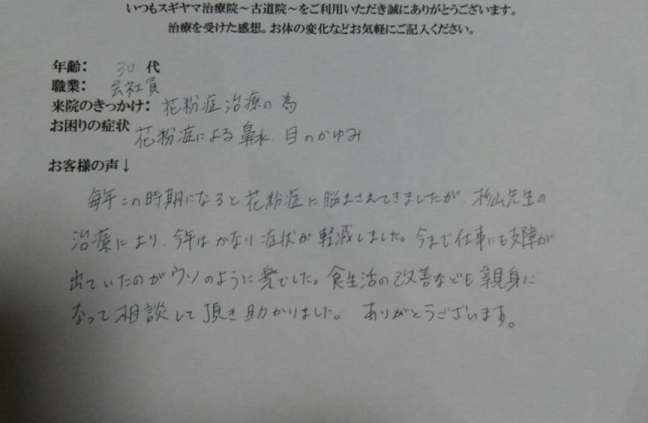 いつもスギヤマ治療院～古道院～をご利用いただき誠にありがとうございます。
治療を受けた感想。お体の変化などお気軽にご記入ください。
年齢： 30 代
職業： 会社員
来院のきっかけ： 花粉症治療の為
お困りの症状 花粉症による鼻水、目のかゆみ
お客様の声↓
毎年この時期になると花粉症に脳まされてきましたが、杉山先生の
治療により、今年はかなり症状が軽減しました。今まで仕事にも支障が
出ていたのがウソのように楽でした。食生活の改善なども親身に
なって相談して頂き助かりました。 ありがとうございます。